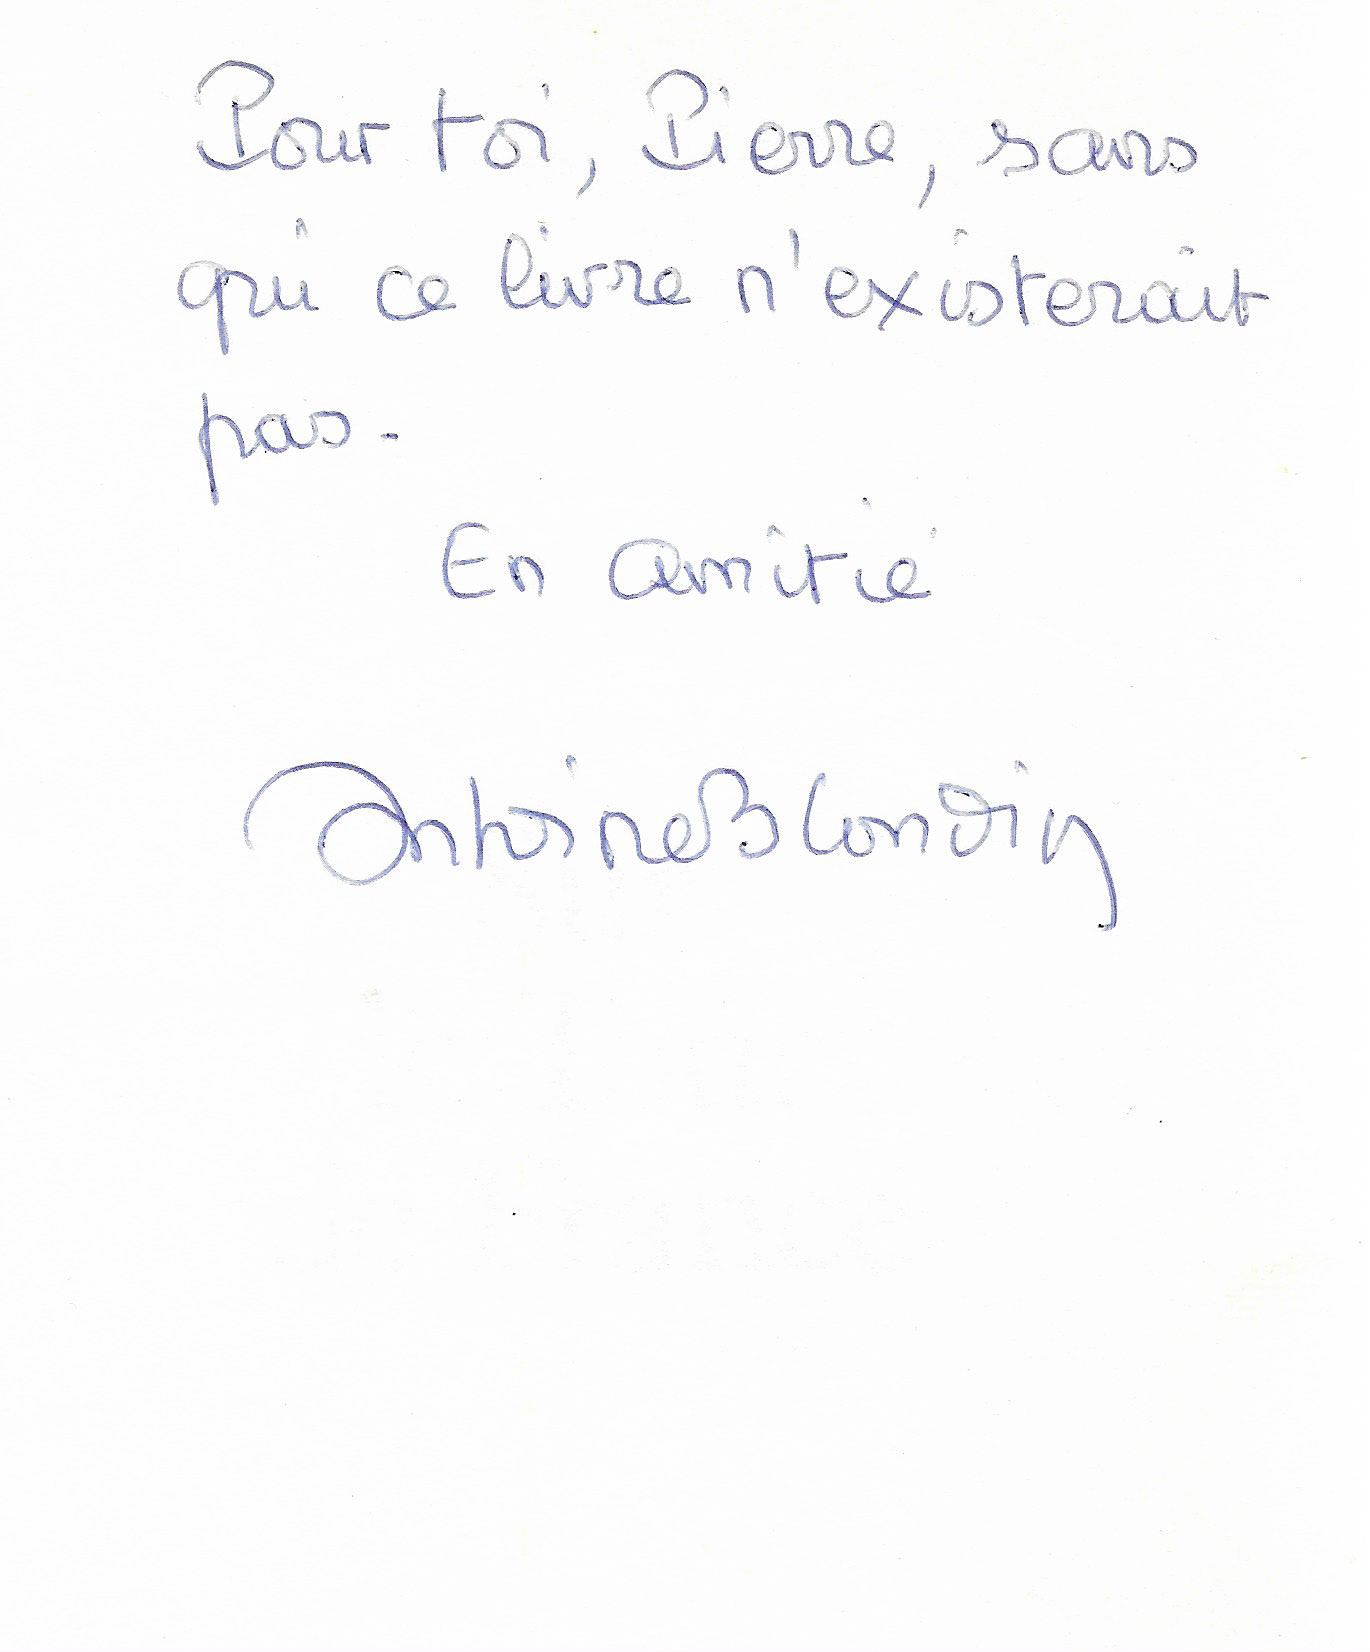 Pour toi, Pierre, sans
qui ce livre n'existerait
pas.
En amitié
Antoine Blondin